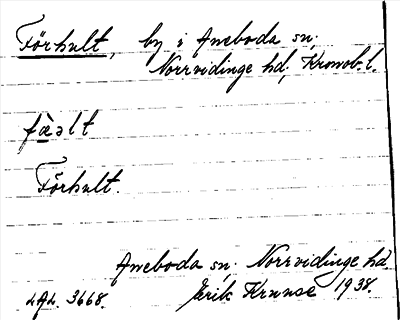 Förhult, by i Aneboda sn;
Norrvidinge hd, Kronob. l.
fàəlt
Förhult.
Aneboda sn, Norrvidinge hd.
LAL. 3668. Erik Kruuse 1938.